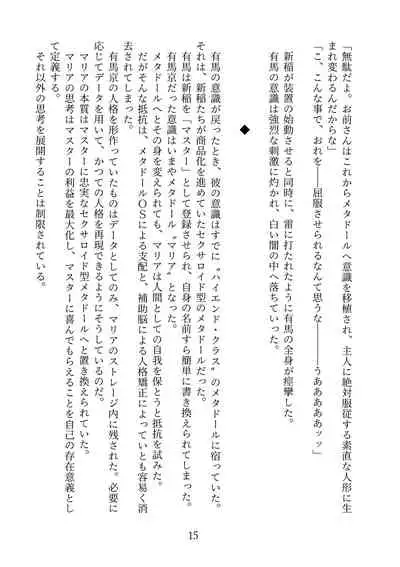 「無駄だよ。お前さんはこれからメタドールへ意識を移植され、主人に絶対服従する素直な人形に生
まれ変わるんだからな」
「こ、こんな事で、おれを――屈服させられるなんて思うな――――うああああァッ」
新稲が装置の始動させると同時に、雷に打たれたように有馬の全身が痙攣した。
有馬の意識は強烈な刺激に灼かれ、白い闇の中へ落ちていった。
◆
有馬の意識が戻ったとき、彼の意識はすでに〝ハイエンド・クラス〟のメタドールに宿っていた。
それは、新稲たちが商品化を進めていたセクサロイド型のメタドールだった。
有馬は新稲を「マスター」として登録させられ、自身の名前すら簡単に書き換えられてしまった。
有馬京だった意識はいまやメタドール〝マリア〟となった。
メタドールへとその身を変えられても、マリアは人間としての自我を保とうと抵抗を試みた。
だがそんな抵抗は、メタドールOSによる支配と、補助脳による人格矯正によっていとも容易く消
去されてしまった。
有馬京の人格を形作っていたものはデータとしてのみ、マリアのストレージ内に残された。必要に
応じてデータを用いて、かつての人格を再現できるようにそうしているのだ。
マリアの本質はマスターに忠実なセクサロイド型メタドールへと置き換えられていた。
マリアの思考はマスターの利益を最大化し、マスターに喜んでもらえることを自己の存在意義とし
て定義する。
それ以外の思考を展開することは制限されている。
15